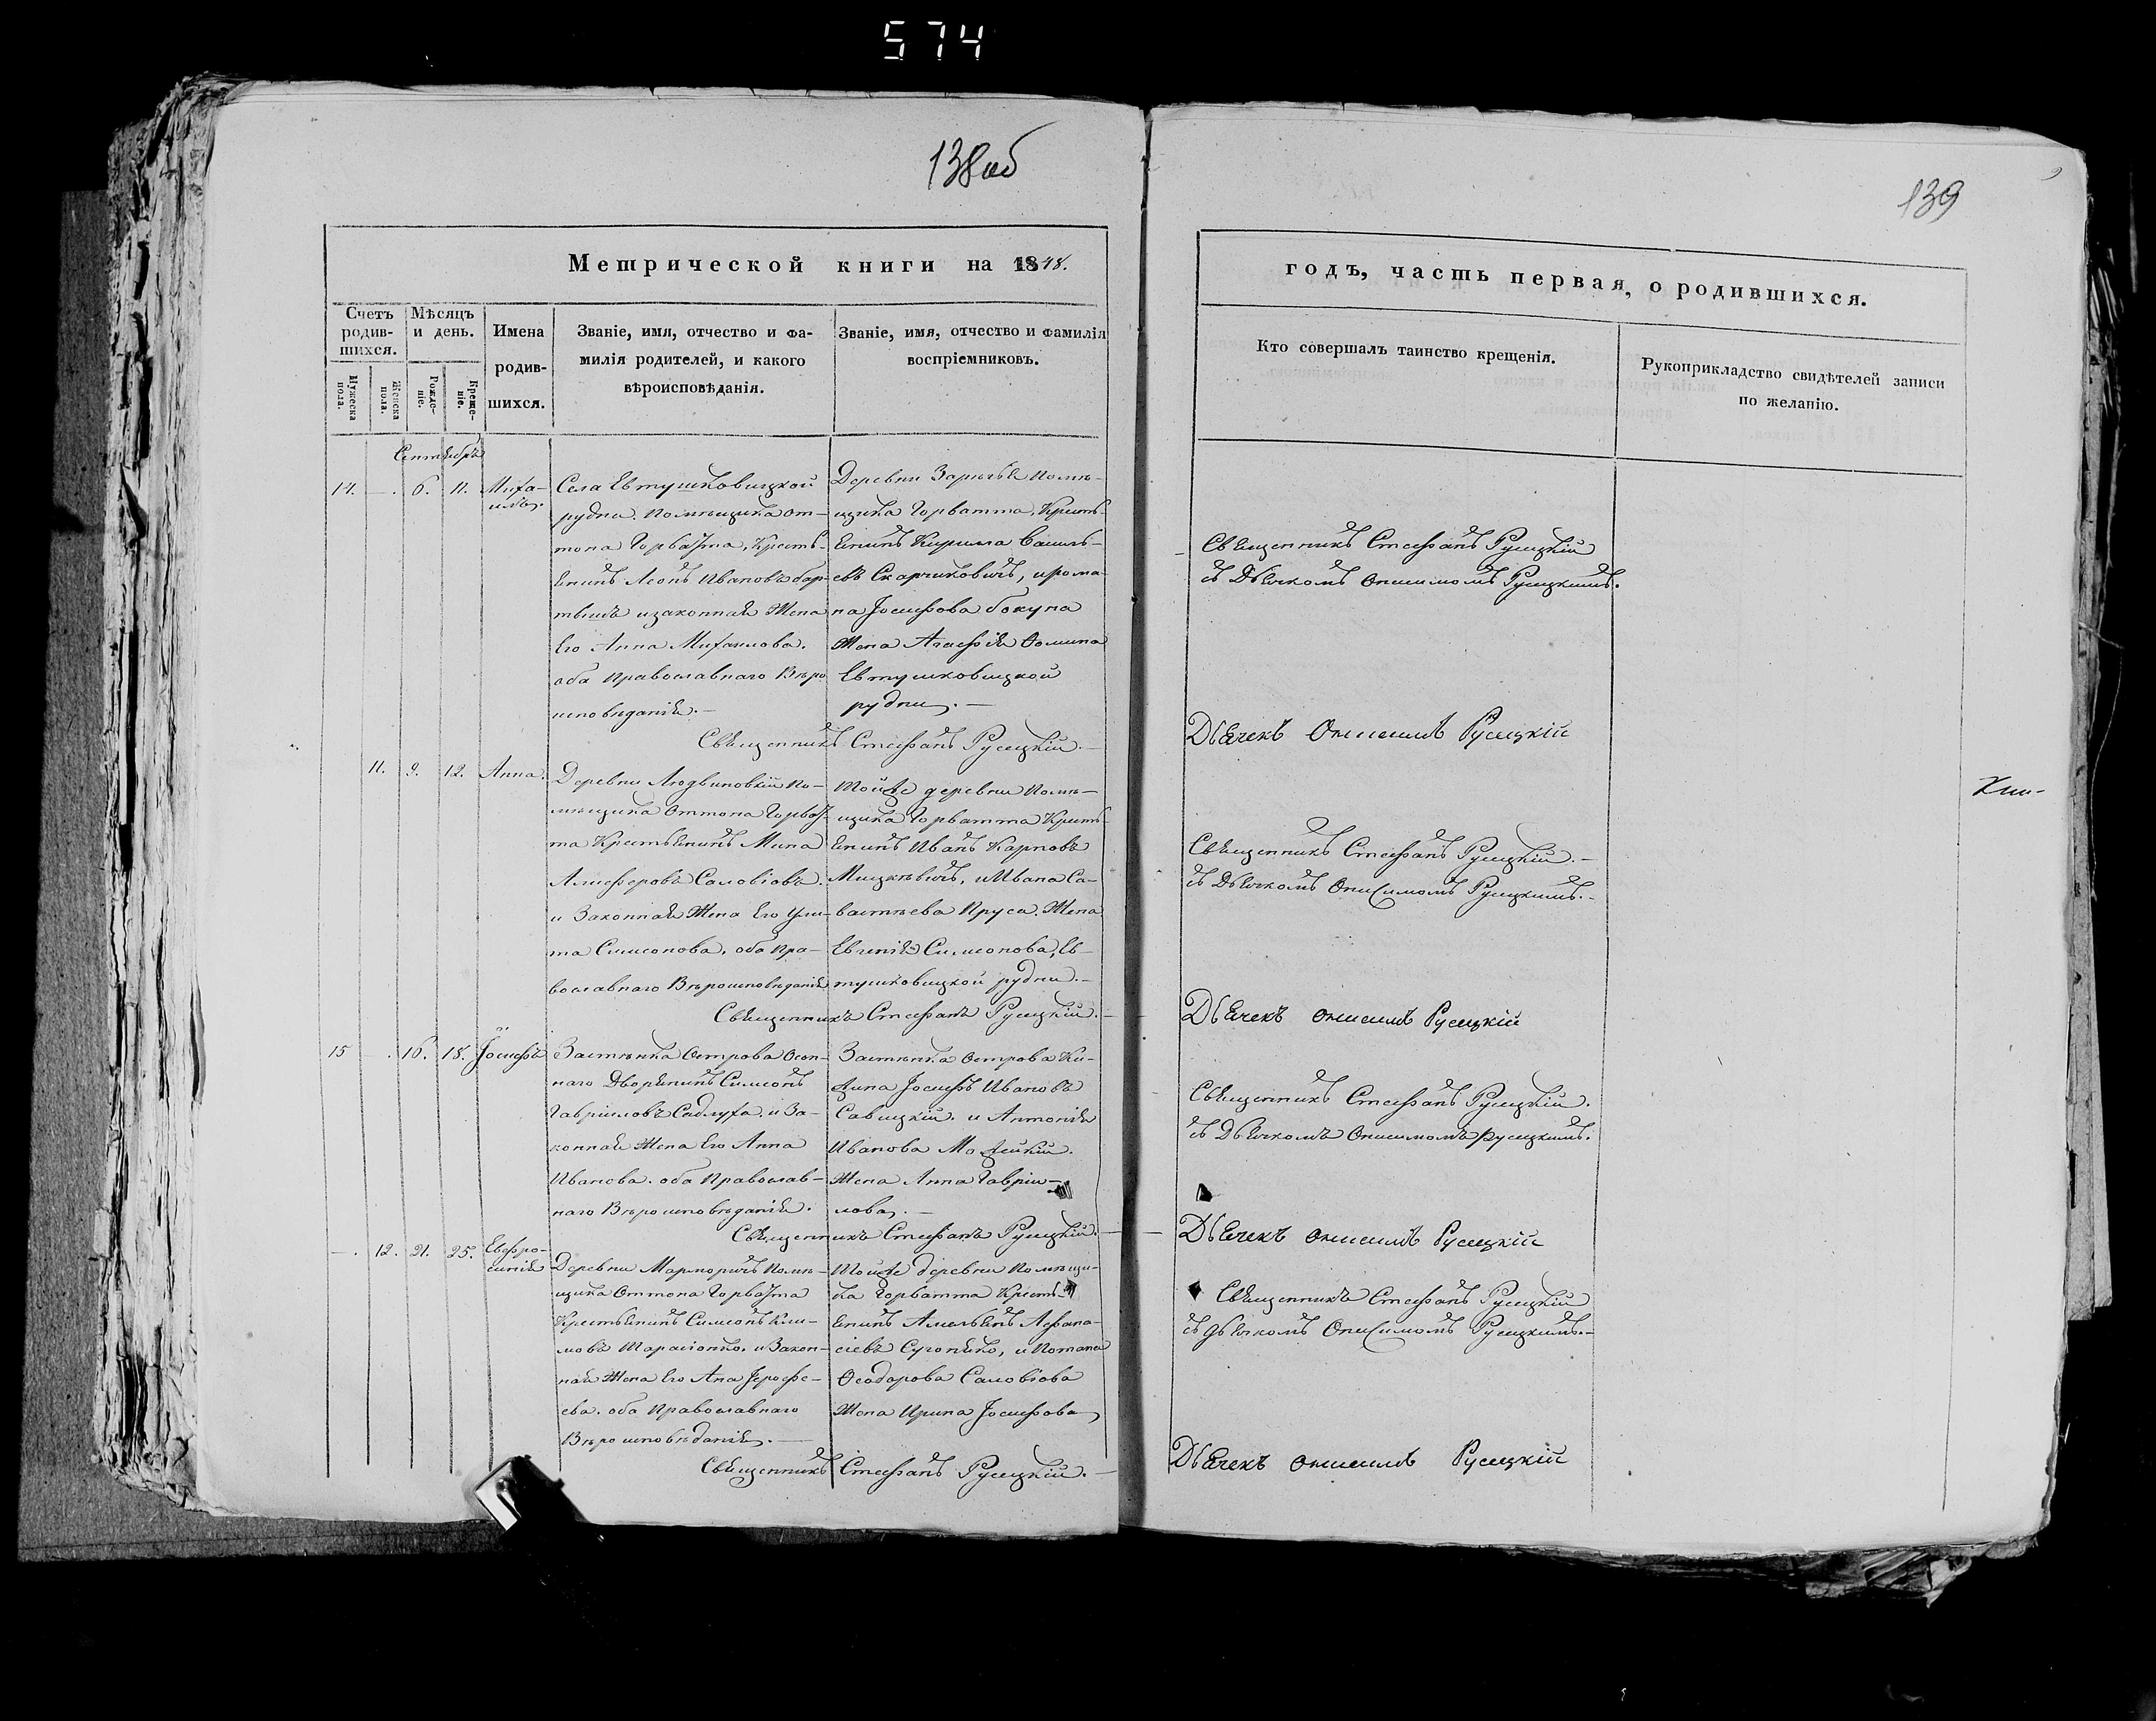 574
138 об
139
Метрической книги на 1848.
годъ, часть первая, о родившихся.
Счетъ родившихся.
Мужеска пола.
Женска пола.
Мѣсяцъ и день.
Рожденіе.
Крещеніе.
Имена родившихся.
Званіе, имя, отчество и фамилія родителей, и какого вѣроисповѣданія.
Званіе, имя, отчество и фамилія воспріемниковъ.
Кто совершалъ таинство крещенія.
Рукоприкладство свидѣтелей записи по желанію.
Сентябрь
14. — . 6. 11. Миха-
илъ.
Села Евтушковицкой
рудни. Помѣщика От-
тона Горватта, Кресть-
янинъ Леонъ Ивановъ
и законная Жена
Его Анна Михаилова.
оба Православнаго Вѣро
исповѣданія. —
Деревни Зарѣчья Помѣ-
щика Горватта, Кресть-
янинъ Кирила Василь-
евъ Скарчиковичъ, и рома-
на Іосифова бокуна
Жена Агафія Ѳомина
Евтушковицкой
рудни. —
Священникъ Стефанъ Русецкій. —
Священникъ Стефанъ Русецкій
съ Дьячкомъ Онисимомъ Русецкимъ.
Дьячекъ Онисимъ Русецкій
11. 9. 12. Анна.
Деревни Людвиновкій По-
мѣщика Оттона Горват-
та Крестьянинъ Мина
Алиферовъ Саловіовъ.
и Законная Жена Его Ули-
та Симеонова. оба Пра-
вославнаго Вѣроисповѣданія
Тойже деревни Помѣ-
щика Горватта Кресть-
янинъ Иванъ Карповъ
Мицкѣвичъ, и Ивана Са-
вастѣева Пруса. Жена
Евгенія Симеонова, Ев-
тушковицкой рудни. —
Священникъ Стефанъ Русецкій. —
Священникъ Стефанъ Русецкій. —
съ Дьячкомъ Онисимомъ Русецкимъ. —
Дьячекъ Онисимъ Русецкій
15 — . 16. 18. Іосифъ
Застѣнка Острова
Дворянинъ Симеонъ
Гавріиловъ Садлуха. и За-
конная Жена Его Анна
Иванова. оба Православ-
наго Вѣроисповѣданія.
Застѣнка Острова
Іосифъ Ивановъ
Савицкій. и Антонія
Иванова
Жена Анна Гавріи-
лова. —
Священникъ Стефанъ Русецкій. —
Священникъ Стефанъ Русецкій.
съ Дьячкомъ Онисимомъ Русецкимъ.
Дьячекъ Онисимъ Русецкій
— . 12. 21. 25. Евфро-
синія
Деревни Марморичъ Помѣ-
щика Оттона Горватта
Крестьянинъ Симеонъ Кли-
мовъ Тарасіонко. и Закон-
ная Жена Его Ана Іерофе-
ева. оба Православнаго
Вѣроисповѣданія. —
Тойже деревни Помѣщи-
ка Горватта Кресть-
янинъ Амельянъ Афана-
сіевъ Сугонѧко, и Потапа
Ѳеодорова Саловіова
Жена Ирина Іосифова
Священникъ Стефанъ Русецкій. —
Священникъ Стефанъ Русецкій
съ дьячкомъ Онисимомъ Русецкимъ. —
Дьячекъ Онисимъ Русецкій